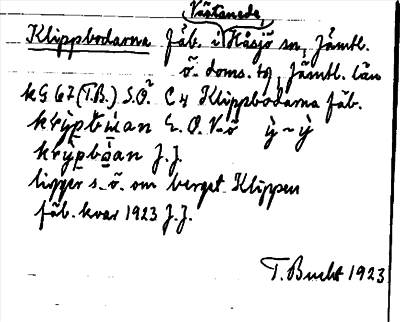 Västanede,
Klippbodarna fäb. i Håsjö sn, Jämtl.
ö. doms. tg, Jämtl. län
kG 67 (T.B.) S.Ö. C4 Klippbodarna fäb.
E. O. V-ö
J.J.
ligger s. ö. om berget Klippen
fäb. kvar 1923 J.J.
T. Bucht 1923